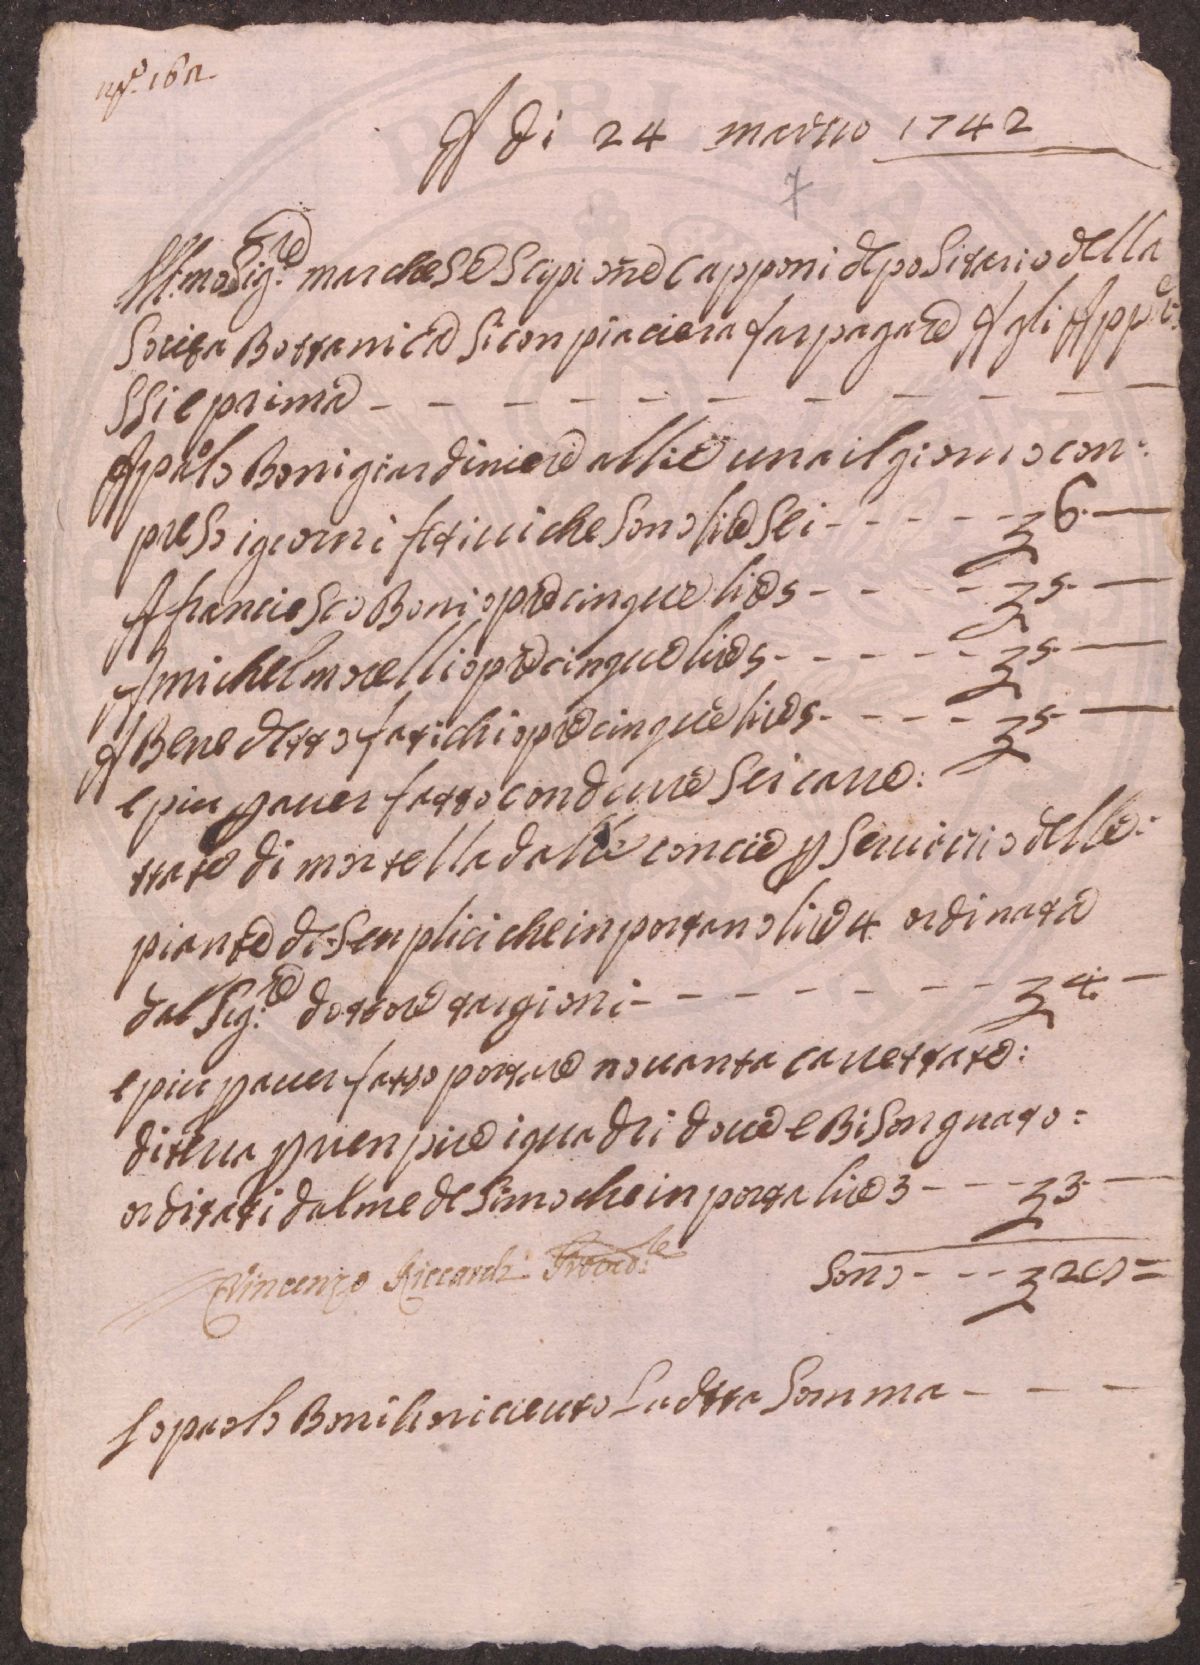 N.º 162
A di 24 marzo 1742
7
Ill.mo Sig.re marchese Scipione Capponi depositario della
Societa Bottanica Si conpiaciera far pagare A gli App.
SSi e prima
A paolo Boni giardiniere a llire una il giorno con:
preso i giorni festiui che Sono lire Sei - - - - - £ 6. —
A franciesco Boni opre cinque lire 5 - - - - £ 5. —
A michel morelli opre cinque lire 5 - - - - - £ 5. —
A Benedetto fatichi opre cinque lire 5 - - - - £ 5. —
e piu p auer fatto condurre Sei carre:
ttate di mortella dalle concie p Seruizio delle:
piante de Senplici che inportano lire 4 ordinata
dal Sig.re dottore targioni - - - - - - - - £ 4. —
e piu p auer fatto portare nouanta carrettate:
di terra p rienpire i quadri doue e Bisongnato:
orditati dal medesimo che inporta lire 3 - - - £ 3. —
Vincenzo Riccardi Proved.re
Sono - - - £ 28 =
Io paolo Boni ho riceuto La detta Somma - - -